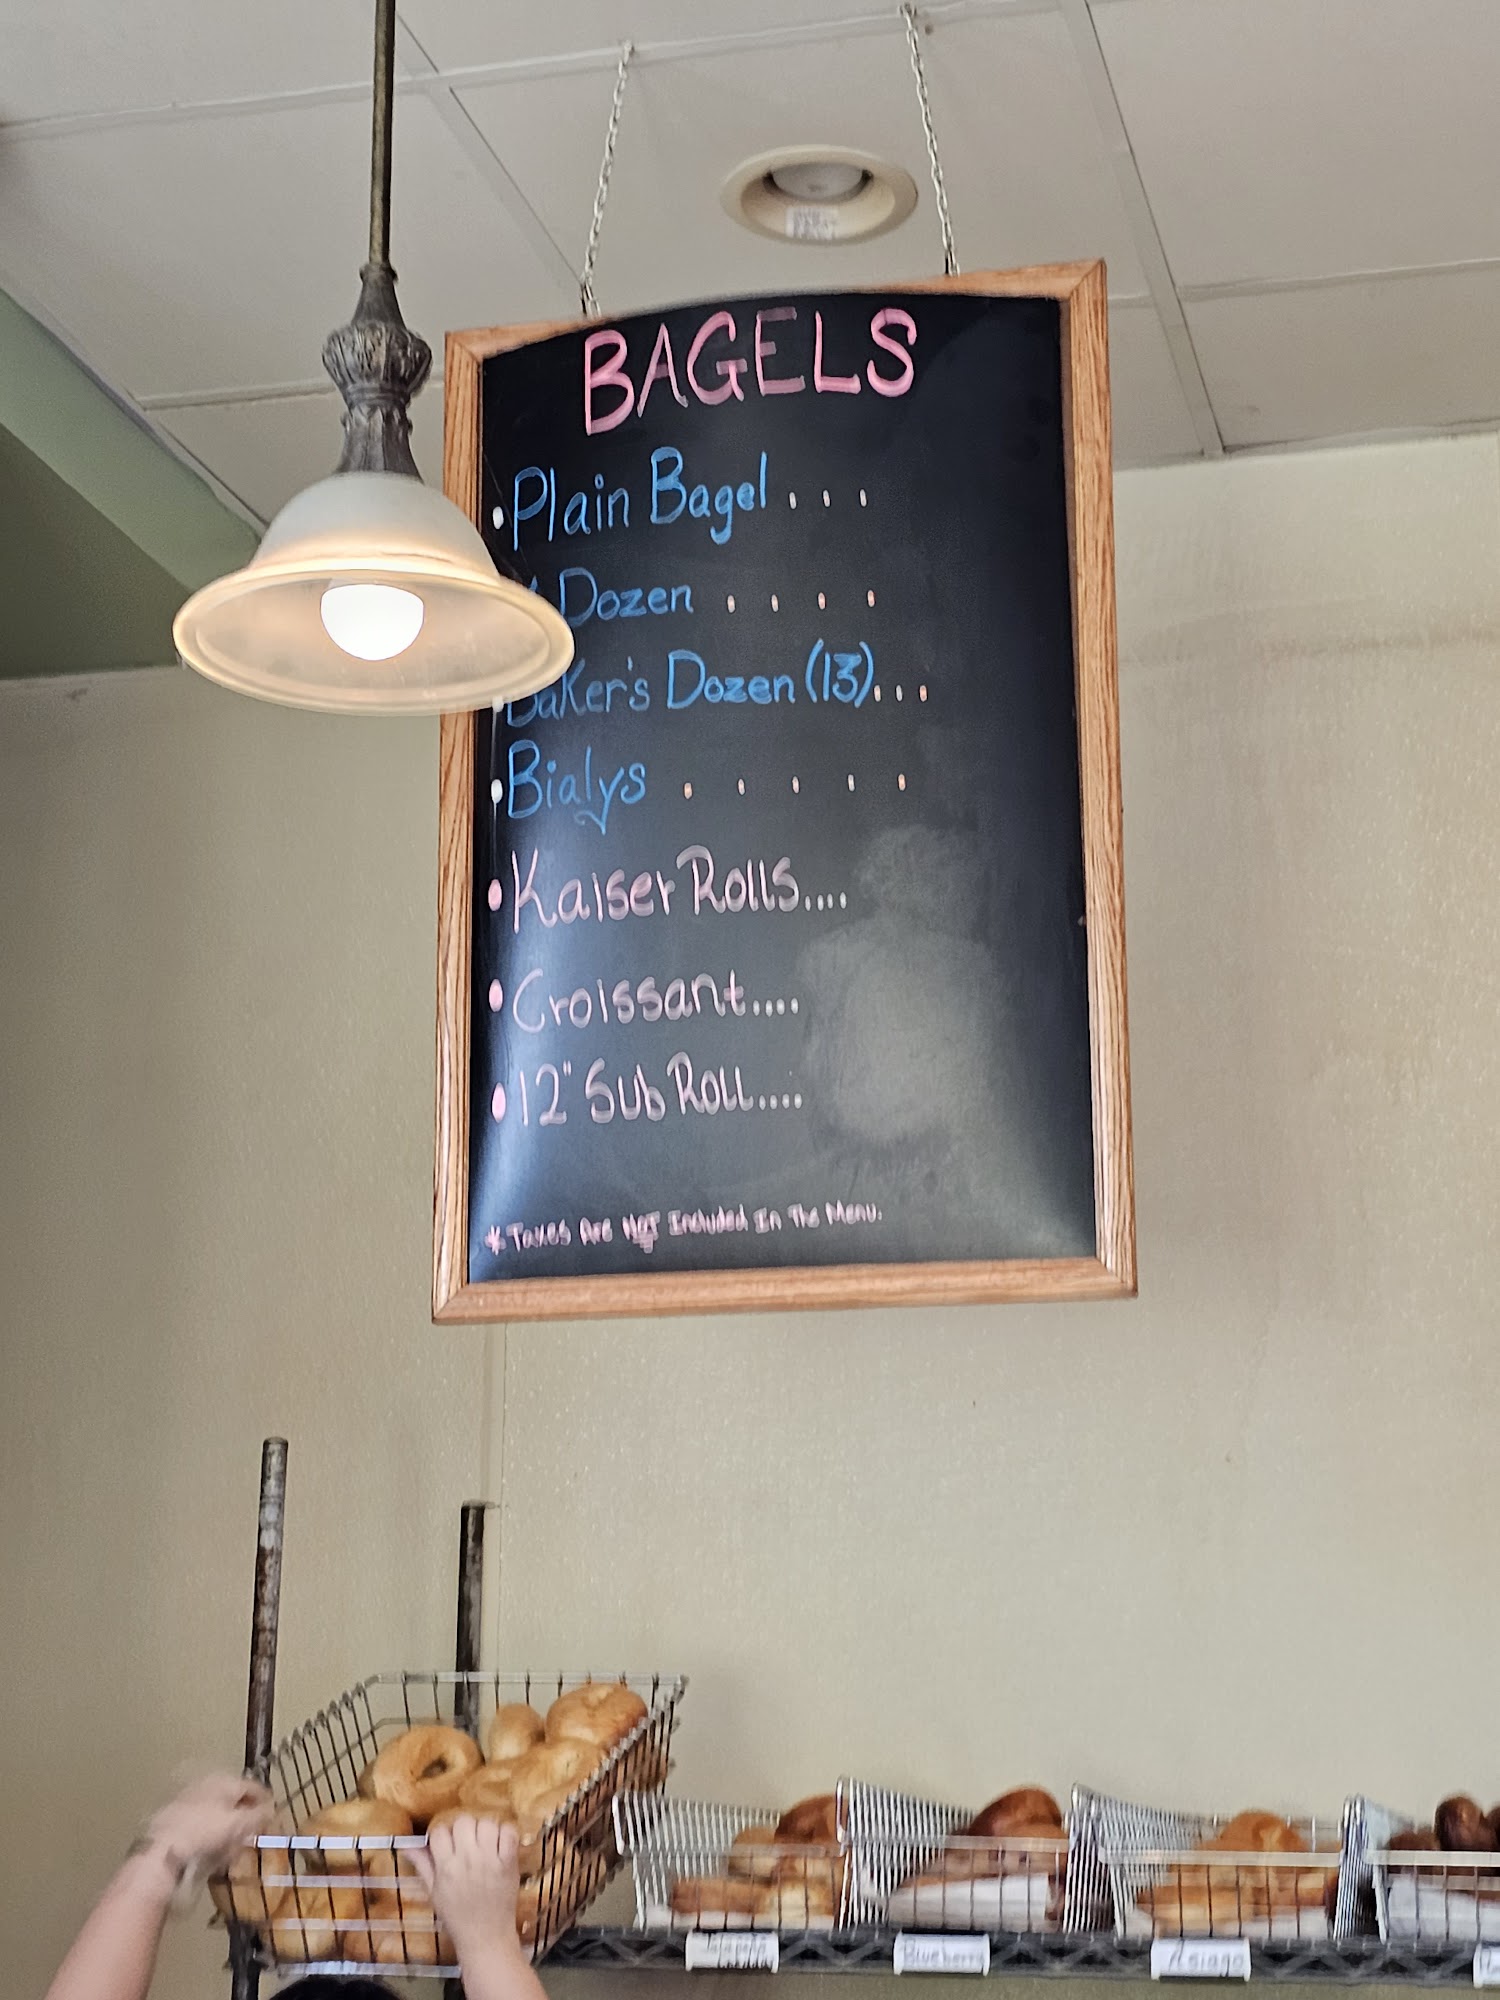 BAGELS
• Plain Bagel . . .
Dozen . . . .
• Baker's Dozen (13) . . .
• Bialys . . . . .
• Kaiser Rolls....
• Croissant....
• 12" Sub Roll....
* Taxes Are NOT Included In The Menu.
Blueberry
Asiago